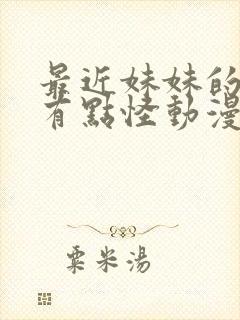 最近妹妹的
有點怪動漫
粟米湯